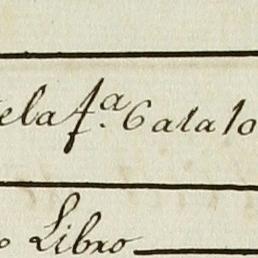 ela f.ª Catalo
o Libro